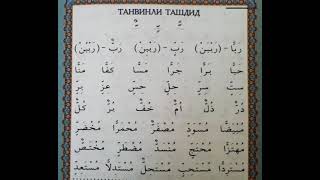 ТАНВИНЛИ ТАШДИД
ـًّ ـٍّ ـٌّ
رَبًّا - (رَبْبَنْ) رَبٍّ - (رَبْبِنْ) رَبٌّ - (رَبْبُنْ)
حَبًّا بَرًّا جَرًّا مَسًّا كَفًّا مَنًّا
سِتٍّ سِرٍّ حِلٍّ حِسٍّ عِزٍّ بِرٍّ
دُرٌّ ذُلٌّ أُمٌّ خُفٌّ بُرٌّ كُلٌّ
مُبْيَضًّا مُسْوَدٍّ مُصْفَرٌّ مُحْمَرًّا مُخْضَرٍّ
مُهْتَزًّا مُحْتَجٍّ مُنْسَدٌّ مُضْطَرٍّ مُخْتَصٌّ
مُسْتَرِدًّا مُسْتَحِبٍّ مُسْتَحِلٌّ مُسْتَدِلًّا مُسْتَعِدٍّ